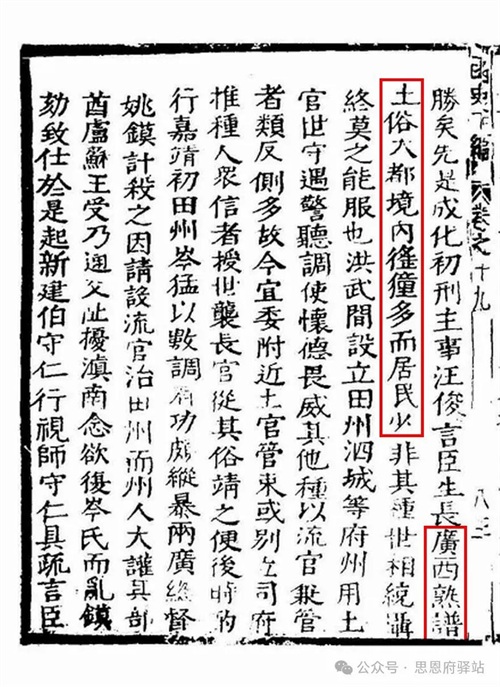 函史下編 卷之十九 八三
勝矣先是成化初刑主事汪俊言臣生長廣西熟譜
土俗大都境內徭獞多而居民少非其種世相統攝
終莫之能服也洪武間設立田州泗城等府州用土
官世守遇警聽調使懷德畏威其他種以流官管
者類反側多故今宜委附近土官管束或別立司府
推種人衆信者授世襲長官從其俗靖之便後時
行嘉靖初田州岑猛以數調有功頗縱暴兩廣總督
姚鏌計殺之因請設流官治田州而州人大讙其部
酋盧蘇王受乃通交阯擾滇南念欲復岑氏而亂鏌
劾致仕於是起新建伯守仁行視師守仁具疏言臣
公众号 · 思恩府驿站